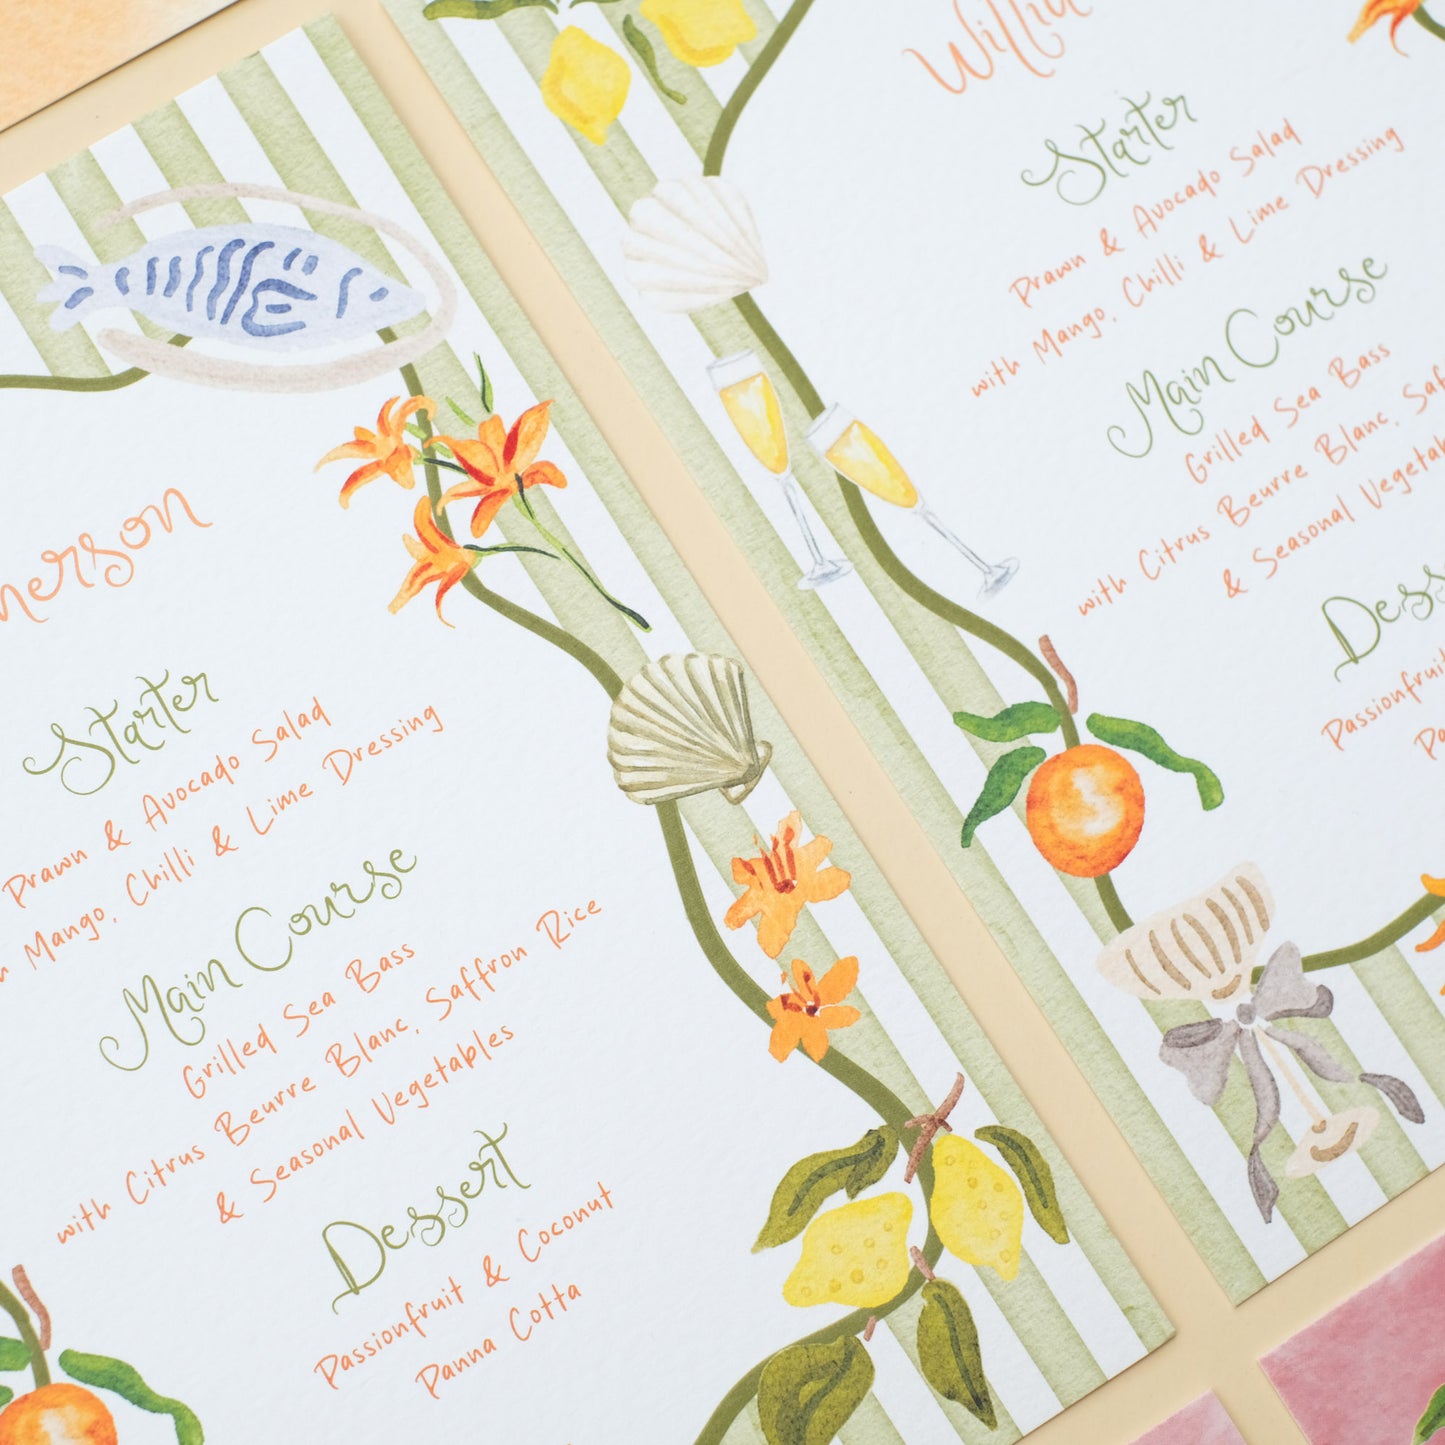 Starter
Prawn & Avocado Salad
Mango, Chilli & Lime Dressing
Main Course
Grilled Sea Bass
with Citrus Beurre Blanc, Saffron Rice
& Seasonal Vegetables
Dessert
Passionfruit & Coconut
Panna Cotta
Starter
Prawn & Avocado Salad
with Mango, Chilli & Lime Dressing
Main Course
Grilled Sea Bass
with Citrus Beurre Blanc,
& Seasonal